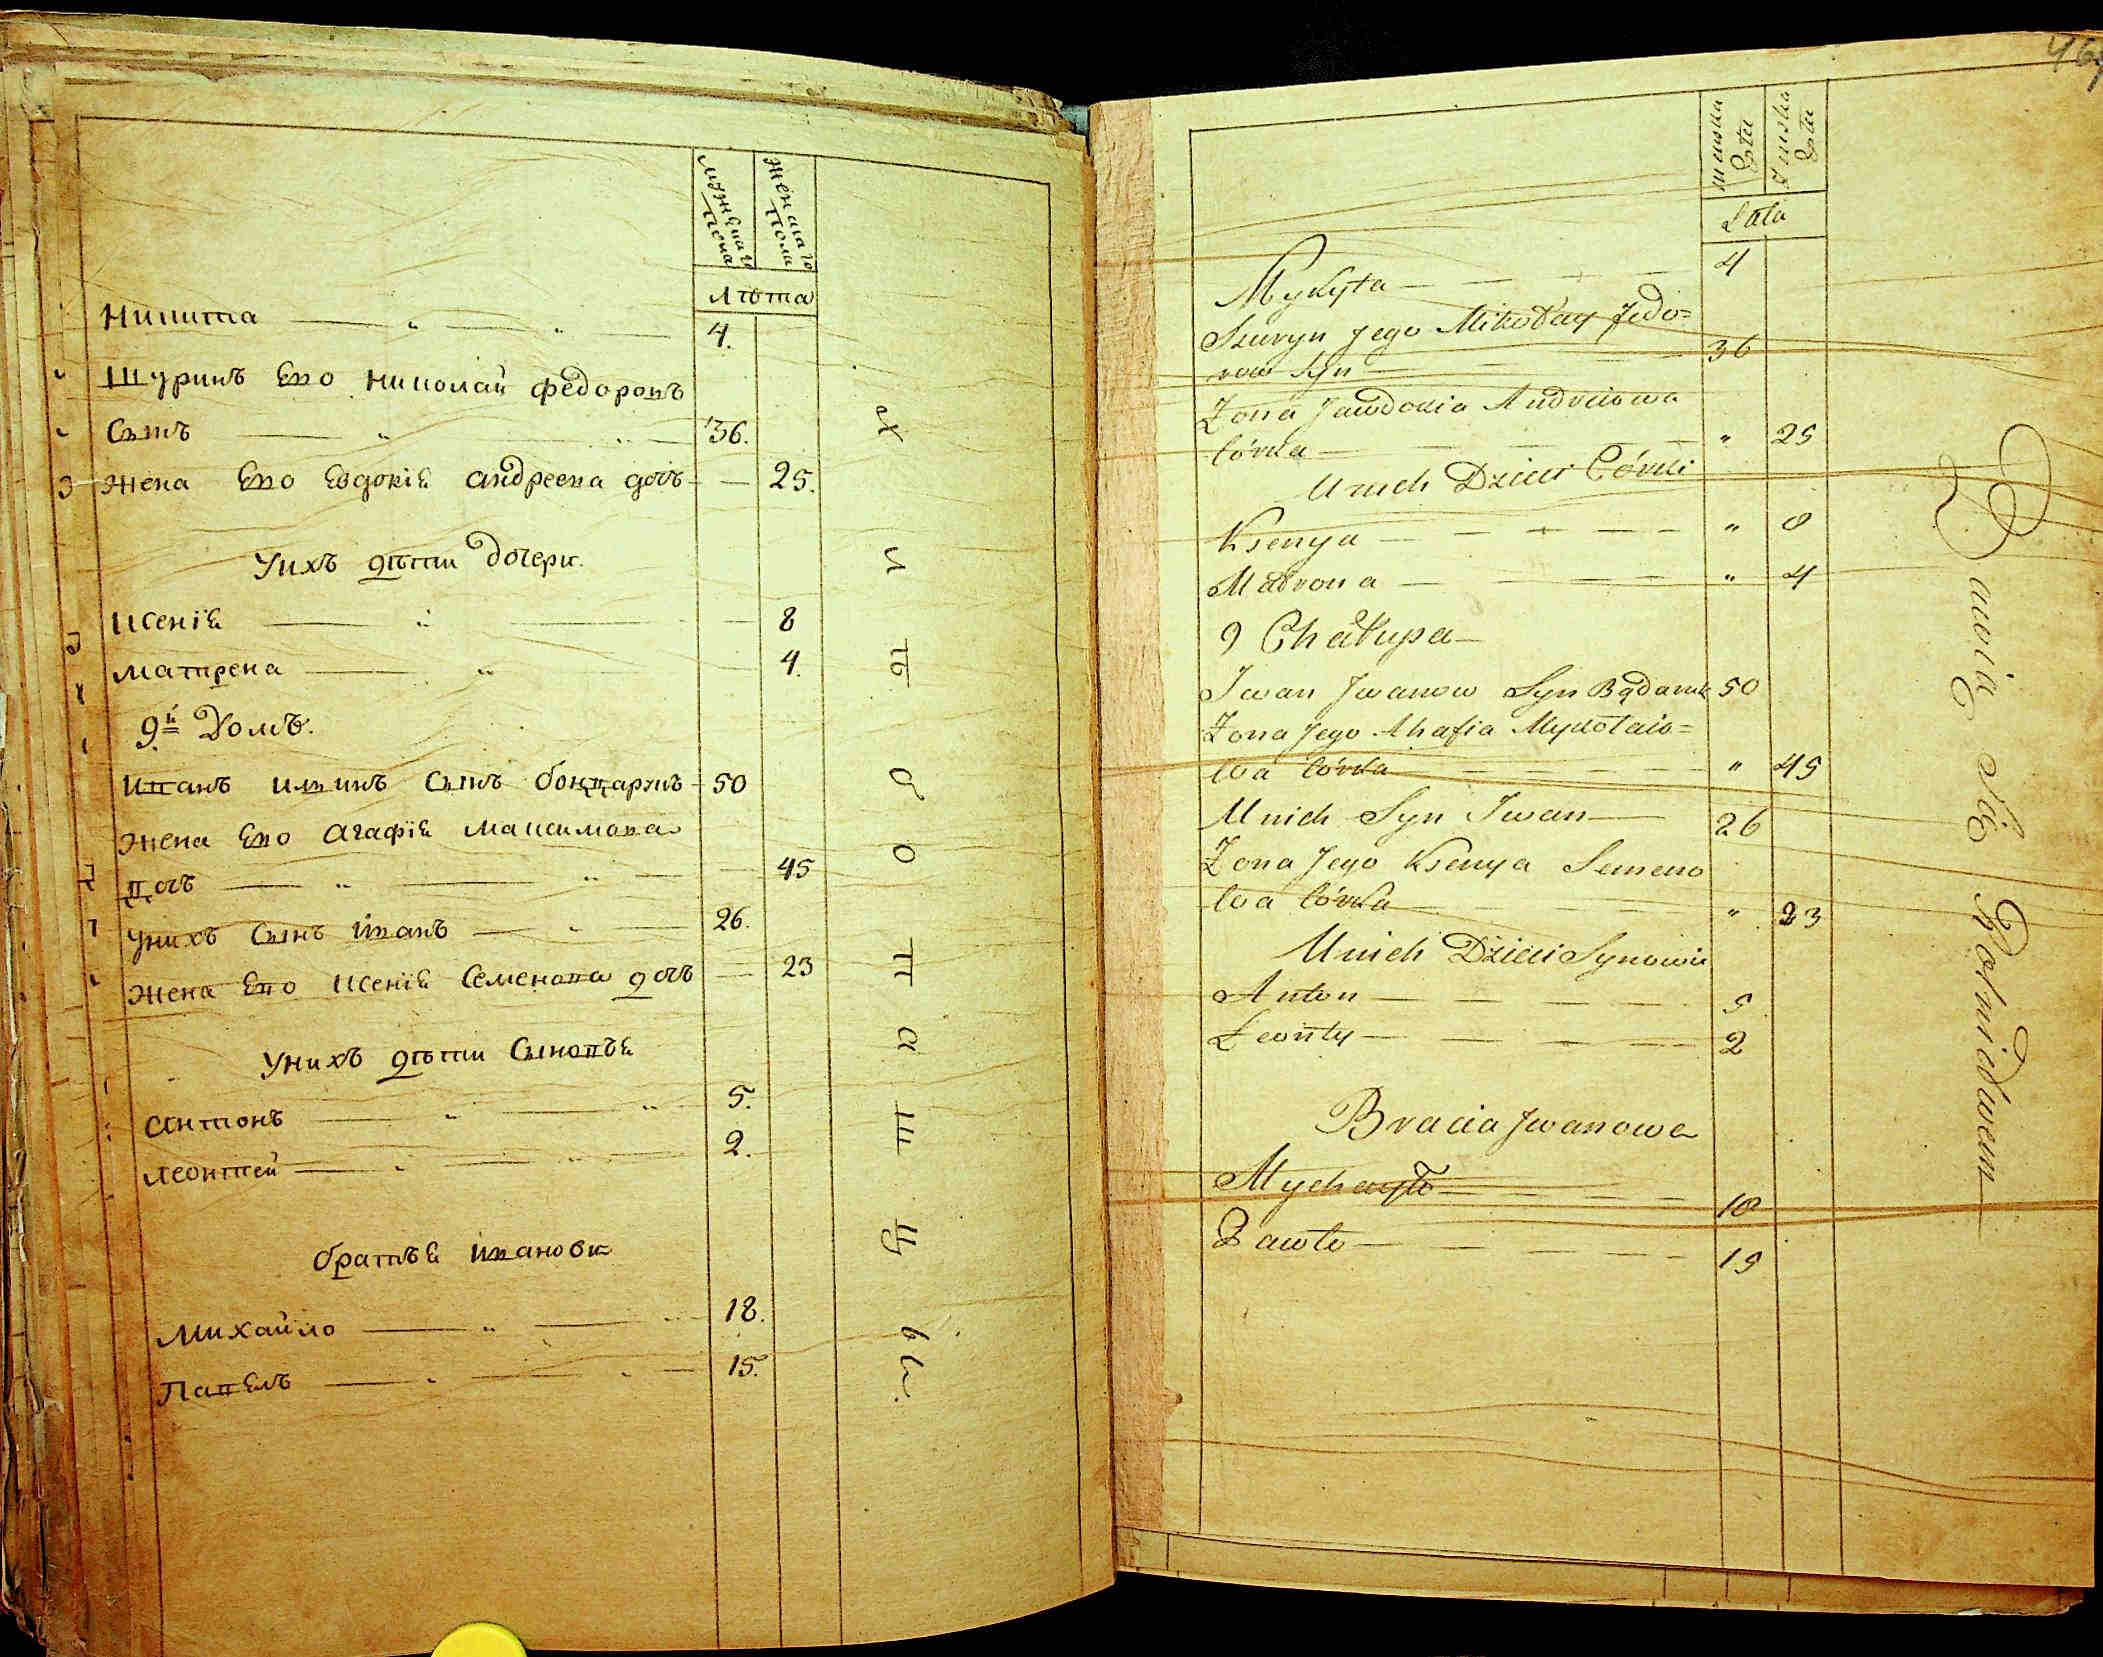 мужеска го пола
женска го пола
лѣта
Никита 4.
Шуринъ Его Николай Федоровъ
Сынъ 36.
Жена Его Евдокіѣ Андреева дочь 25.
Унихъ дѣти дочери.
Ксеніѣ 8
Матрена 4.
9й Домъ.
Иванъ Ильинъ Сынъ бондарукъ 50
Жена Его Агафіѣ Максимова
дочь 45
Унихъ Сынъ Иванъ 26.
Жена Его Ксеніѣ Семенова дочь 23
Унихъ дѣти Сыновьѣ
Антонъ 5.
Леонтей 2.
братьѣ Ивановы
Михайло 18.
Павелъ 15.
хлѣбопашцы.
467
Męska Płci
Żenska Płci
Lata
Mykyta 4
Szuryn Jego Mikołay Fedo=
row Syn 36
Żona Jawdokia Andreiowa
Córka " 25
U nich Dzieci Córki
Ksenya " 8
Madrona " 4
9 Chałupa
Iwan Iwanow Syn Bądaruk 50
Żona Jego Ahafia Mykołaio=
wa Córka " 45
U nich Syn Iwan 26
Żona Jego Ksenya Semeno
wa Córka " 23
U nich Dzieci Synowie
Anton 5
Leonty 2
Bracia Iwanowe
Mychayło 18
Pawło 15
Bawią Się Rolnictwem